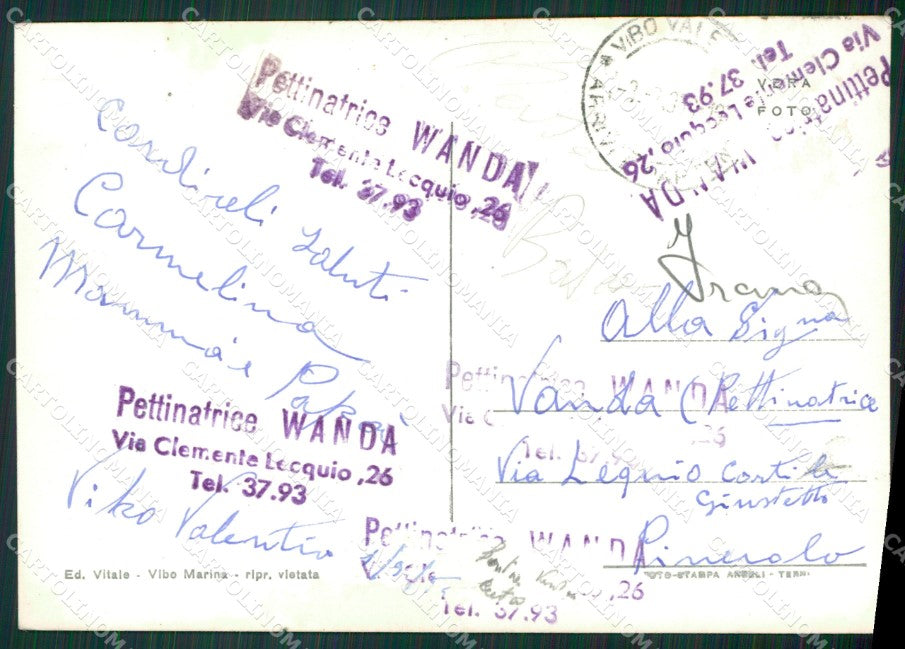 Pettinatrice WANDA
Via Clemente Lecquio, 26
Tel. 37.93
Cordiali Saluti
Carmelina
Mamma e Papà
Pettinatrice WANDA
Via Clemente Lecquio, 26
Tel. 37.93
Vibo Valentia
Ed. Vitale - Vibo Marina - ripr. vietata
VIBO VALE
VERA
FOTO
Pettinatrice WANDA
Via Clemente Lecquio, 26
Tel. 37.93
Alla Signa
Vanda (Pettinatrice
Via Lequio Cortile
Giustetto
Pinerolo
Pettinatrice WANDA
Via
26
Tel. 37.93
Pettinatrice WANDA
,26
Tel. 37.93
FOTO-STAMPA ANGELI - TERNI
CARTOLINOMANIA